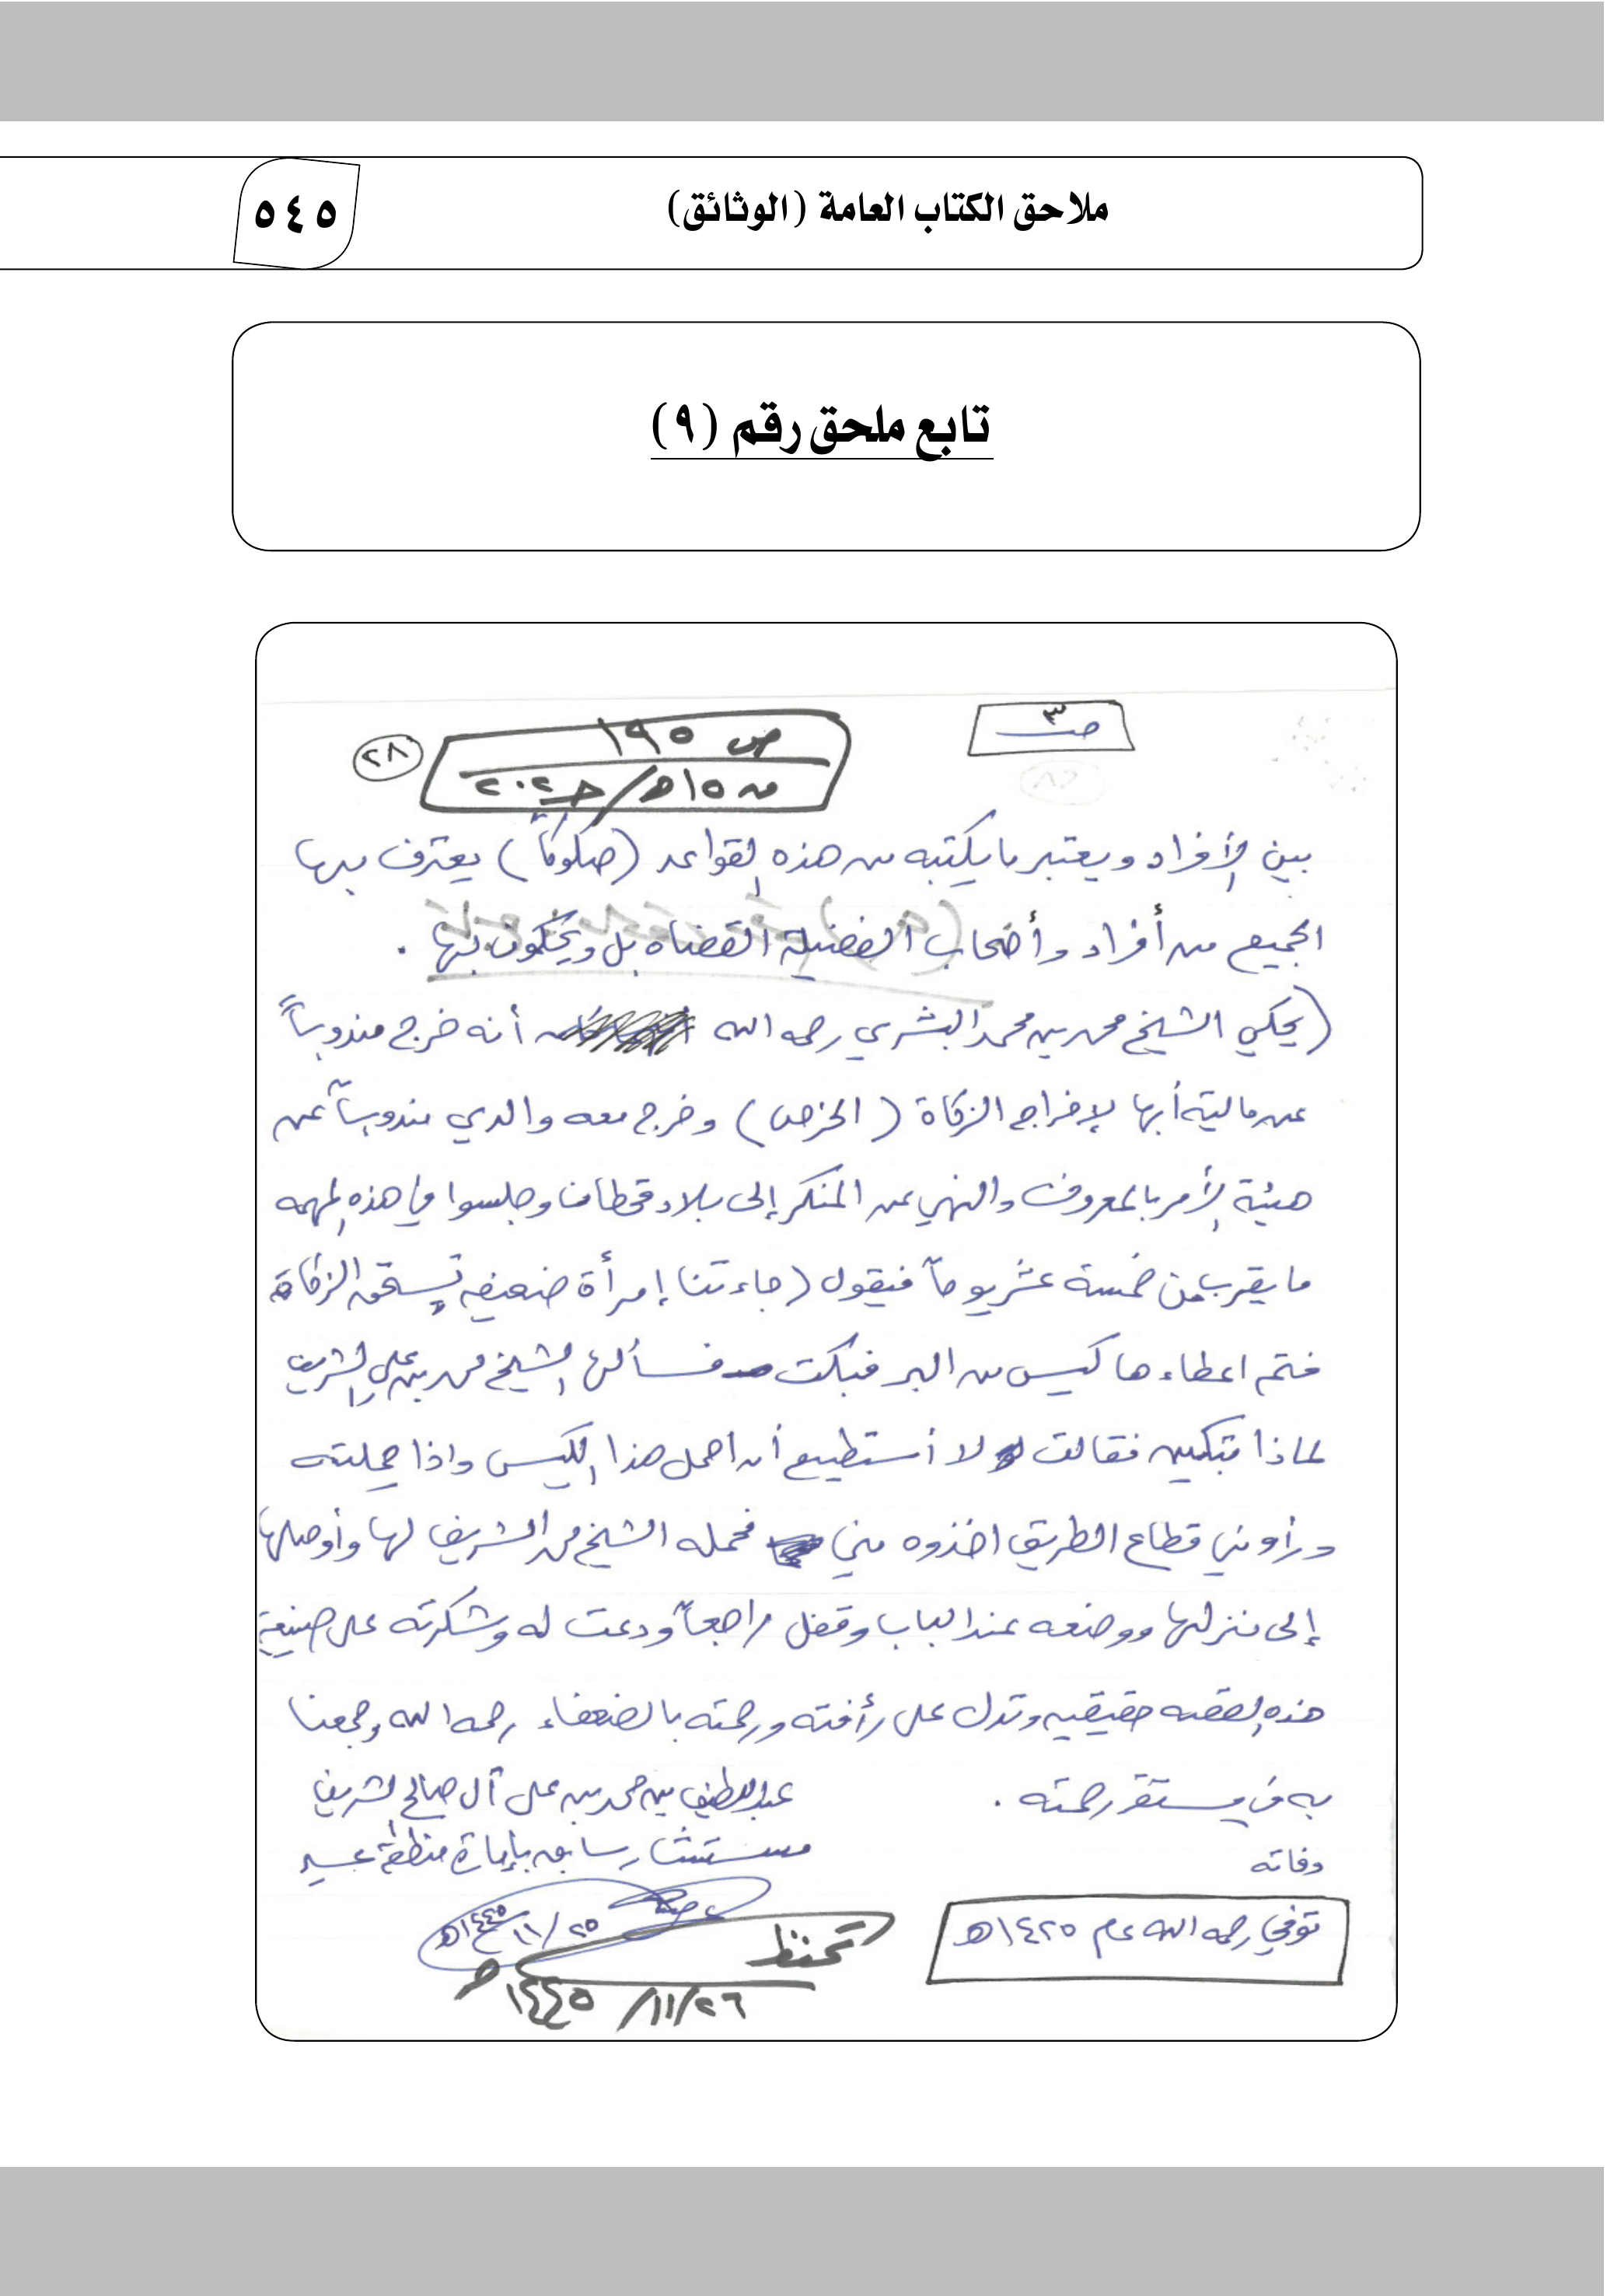 ملاحق الكتاب العامة (الوثائق)
٥٤٥
تابع ملحق رقم (٩)
ص٣
ص ١٩٥
٢٨
بين الأفراد ويعتبر ما يكتبه من هذه القواعد (صكوكاً) يعترف بها
الجميع من أفراد وأصحاب الفضيلة القضاه بل ويحكمون بها .
(يحكي الشيخ محمد بن محمد البشري رحمه الله أنه خرج مندوباً
عن مالية أبها لإخراج الزكاة (الخرص) وخرج معه والدي مندوباً عن
هيئة الأمر بالمعروف والنهي عن المنكر إلى بلاد قحطان وجلسوا في هذه المهمه
ما يقرب من خمسة عشر يوماً فيقول (جاءتنا إمرأة ضعيفه تستحق الزكاة
فتم اعطاءها كيس من البر فبكت فسألها الشيخ محمد بن علي الشريف
لماذا تبكين فقالت لا أستطيع أن احمل هذا الكيس واذا حملته
ورأوني قطاع الطريق اخذوه مني فحمله الشيخ محمد الشريف لها وأوصلها
إلى منزلها ووضعه عند الباب وقفل راجعاً ودعت له وشكرته على صنيعه
هذه القصه حقيقيه وتدل على رأفته ورحمته بالضعفاء رحمه الله وجمعنا
به في مستقر رحمته .
عبداللطيف بن محمد بن علي آل صالح الشريف
مستشار سابق بإمارة منطقة عسير
وفاته
توفي رحمه الله عام ١٤٢٥هـ
٢٥/١١/١٤٤٥هـ
تحفظ
٢٦/١١/١٤٤٥هـ